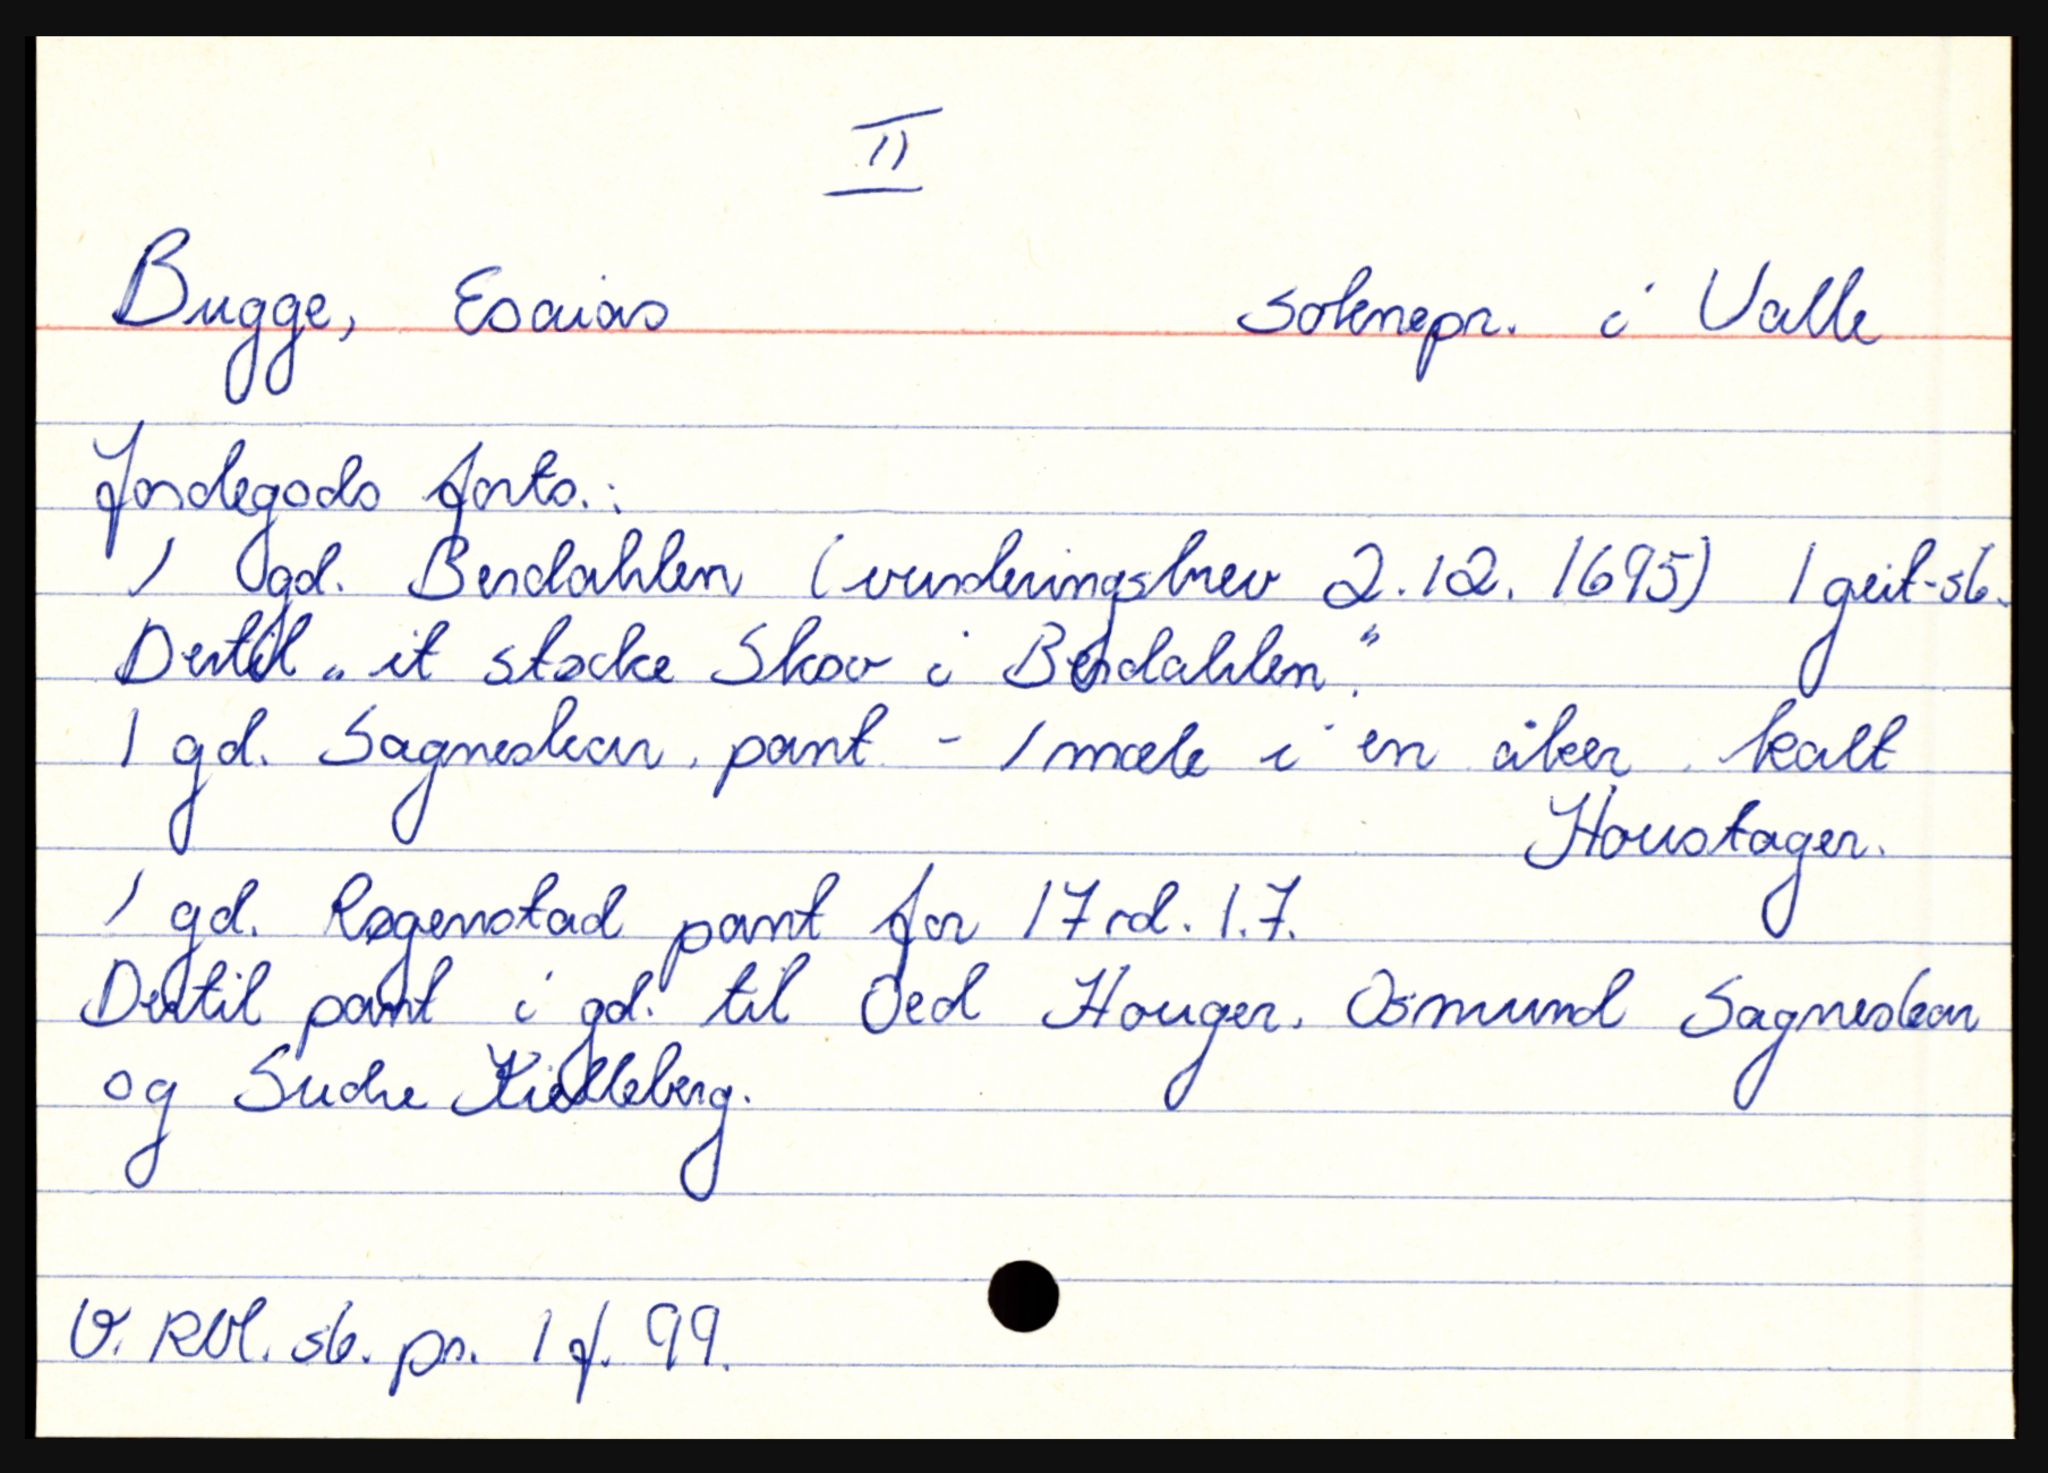 II
Bugge, Esaias soknepr. i Valle
Jordegods forts.:
I gd. Berdahlen (vurderingsbrev 2.12. 1695) 1 geit-sk.
Dertil „it støcke Skov i Berdahlen".
I gd. Sagneskar pant - 1 mæle i en åker kalt
Houstager.
I gd. Røgenstad pant for 17 rd. 1.7.
Dertil pant i gd. til Oed Houger. Osmund Sagneskar
og Suche Kielleberg.
V. RVl. sk. pr. 1 f. 99.